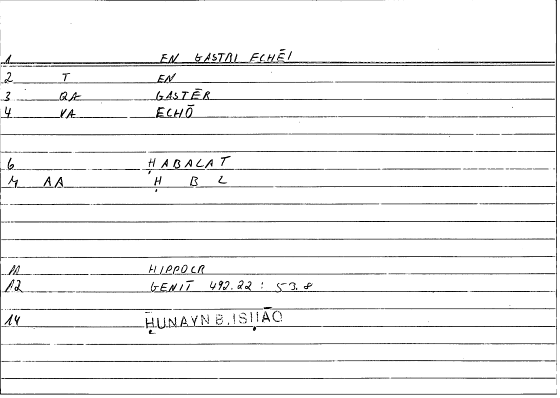 1 EN GASTRI ECHĒI
2 T EN
3 QA GASTĒR
4 VA ECHŌ
6 ḤABALAT
M AA Ḥ B L
M HIPPOCR
A2 GENIT 492.22 : 53.8
14 ḤUNAYN B. ISḤĀQ